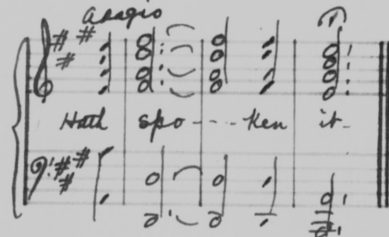 Adagio
Hath spo---ken it-